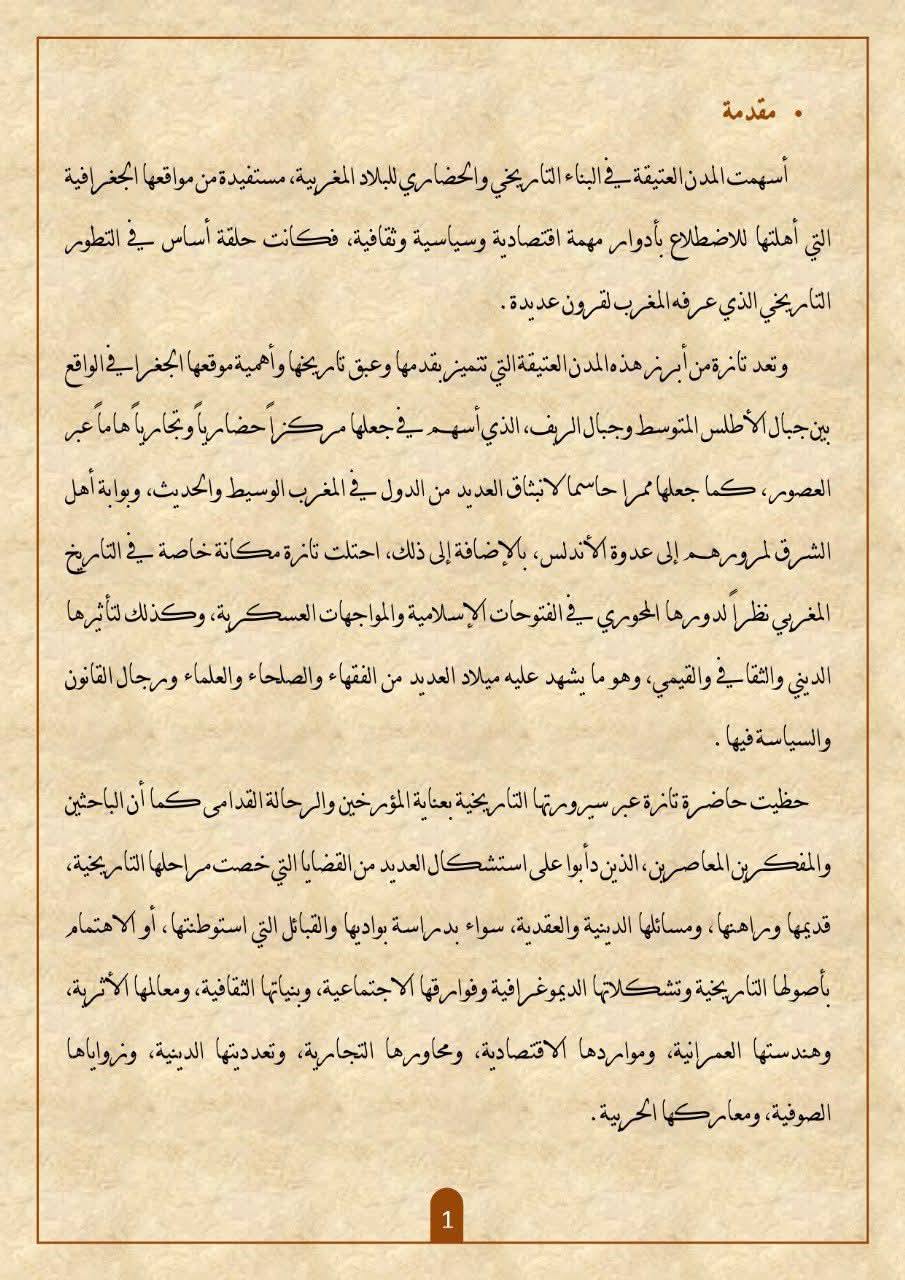 • مقدمة
أسهمت المدن العتيقة في البناء التاريخي والحضاري للبلاد المغربية، مستفيدة من مواقعها الجغرافية
التي أهلتها للاضطلاع بأدوار مهمة اقتصادية وسياسية وثقافية، فكانت حلقة أساس في التطور
التاريخي الذي عرفه المغرب لقرون عديدة.
وتعد تازة من أبرز هذه المدن العتيقة التي تتميز بقدمها وعبق تاريخها وأهمية موقعها الجغرافي الواقع
بين جبال الأطلس المتوسط وجبال الريف، الذي أسهم في جعلها مركزاً حضارياً وتجارياً هاماً عبر
العصور، كما جعلها ممرا حاسما لانبثاق العديد من الدول في المغرب الوسيط والحديث، وبوابة أهل
الشرق لمرورهم إلى عدوة الأندلس، بالإضافة إلى ذلك، احتلت تازة مكانة خاصة في التاريخ
المغربي نظراً لدورها المحوري في الفتوحات الإسلامية والمواجهات العسكرية، وكذلك لتأثيرها
الديني والثقافي والقيمي، وهو ما يشهد عليه ميلاد العديد من الفقهاء والصلحاء والعلماء ورجال القانون
والسياسة فيها.
حظيت حاضرة تازة عبر سيرورتها التاريخية بعناية المؤرخين والرحالة القدامى كما أن الباحثين
والمفكرين المعاصرين، الذين دأبوا على استشكال العديد من القضايا التي خصت مراحلها التاريخية،
قديمها وراهنها، ومسائلها الدينية والعقدية، سواء بدراسة بواديها والقبائل التي استوطنتها، أو الاهتمام
بأصولها التاريخية وتشكلاتها الديموغرافية وفوارقها الاجتماعية، وبنياتها الثقافية، ومعالمها الأثرية،
وهندستها العمرانية، ومواردها الاقتصادية، ومحاورها التجارية، وتعدديتها الدينية، وزواياها
الصوفية، ومعاركها الحربية.
1